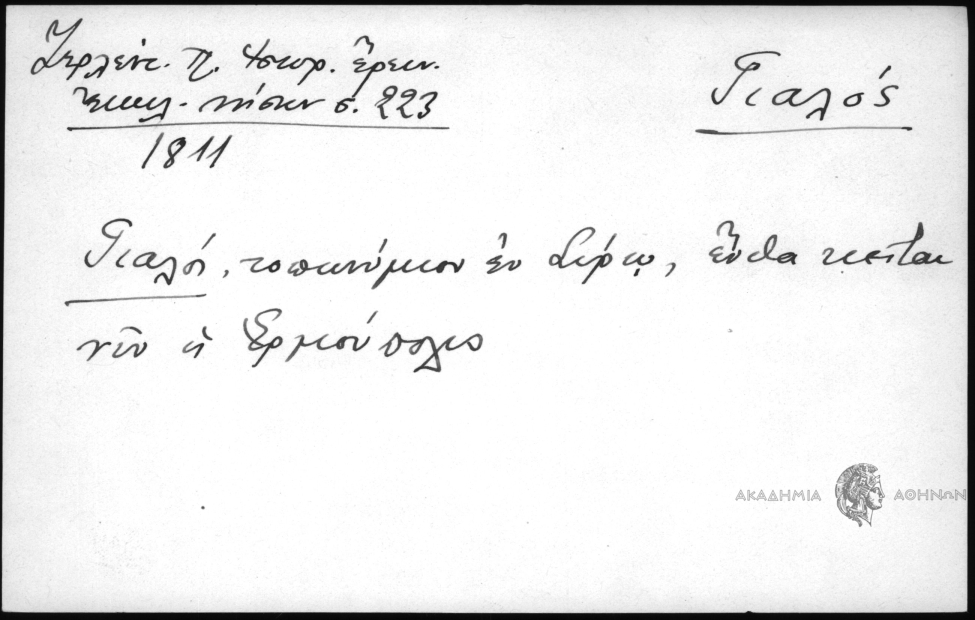 Ζερλέντ. Π. Ἱστορ. Ἔρευν.
Ἐκκλ. νήσων σ. 223
1811
Γιαλός
Γιαλοί, τοπωνύμιον ἐν Σύρῳ, ἔνθα κεῖται
νῦν ἡ Ἑρμούπολις
ΑΚΑΔΗΜΙΑ ΑΘΗΝΩΝ